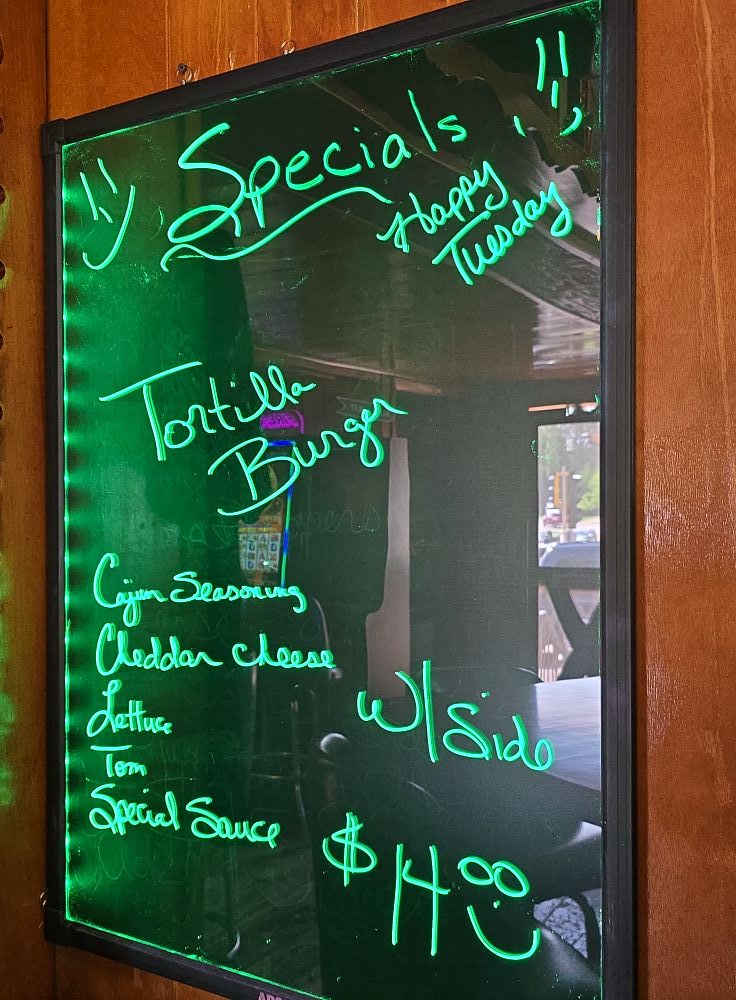 Specials
Happy
Tuesday
Tortilla
Burger
Cajun Seasoning
Cheddar cheese
Lettuce
Tom
Special Sauce
w/Side
$14.00